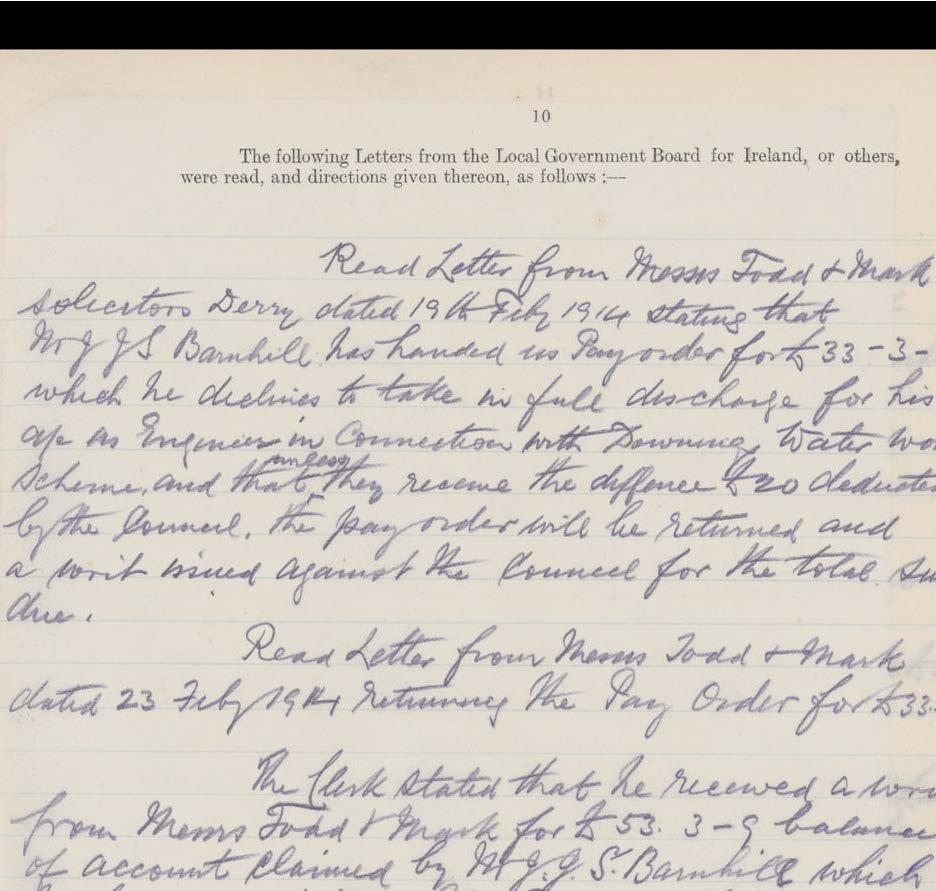 10
The following Letters from the Local Government Board for Ireland, or others,
were read, and directions given thereon, as follows :—
Read Letter from Messrs Todd & Mark
Solicitors Derry dated 19th Feby 1914 stating that
Mr J J S Barnhill has handed us Pay order for £33-3-
which he declines to take in full discharge for his
a/c as Engineer in Connection with Downing, Water Wo
Scheme, and that unless they receive the diffence £20 deducted
by the Council. The pay order will be returned and
a writ issued against the Council for the total su
due.
Read Letter from Messrs Todd & Mark
dated 23 Feby 1914 returning the Pay Order for £33.
The Clerk stated that he received a wri
from Messrs Todd & Mark for £53. 3-9 balance
of account claimed by Mr J. J. S. Barnhill which